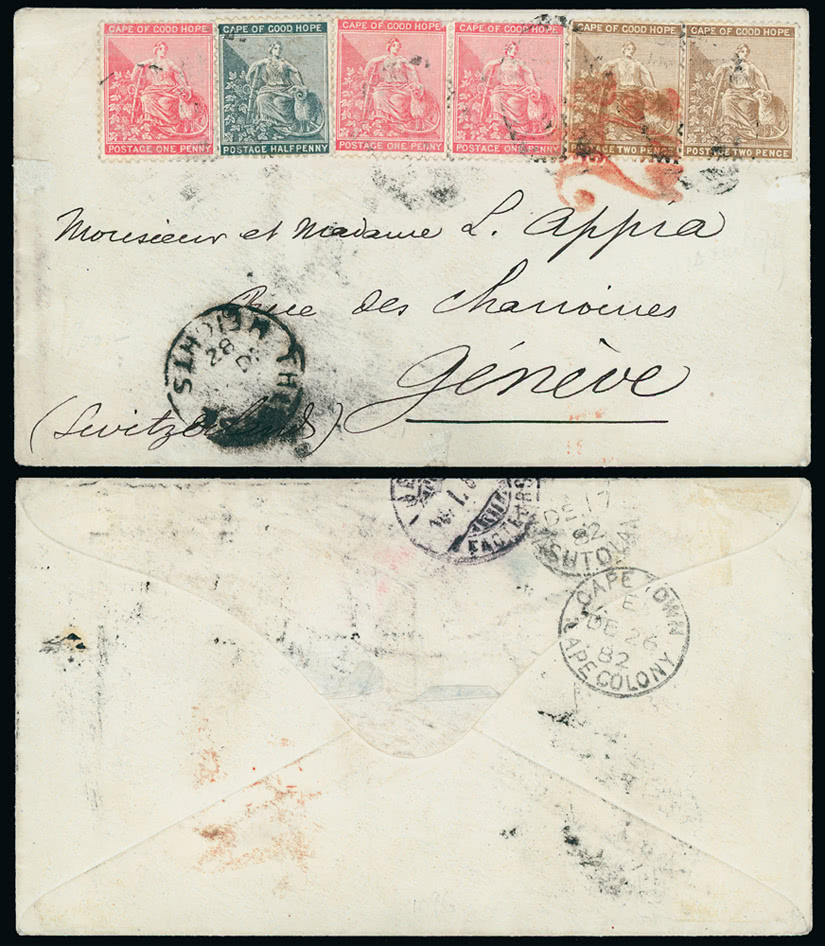 CAPE OF GOOD HOPE CAPE OF GOOD HOPE CAPE OF GOOD HOPE CAPE OF GOOD HOPE CAPE OF GOOD HOPE CAPE OF GOOD HOPE
POSTAGE ONE PENNY POSTAGE HALFPENNY POSTAGE ONE PENNY POSTAGE ONE PENNY POSTAGE TWO PENCE POSTAGE TWO PENCE
2
Monsieur et Madame L. Appia
Rue des Chanoines
Genève
(Switzerland)
HEIGHTS
FACTEURS
DE 17
82
CAPE TOWN
E
DE 26
82
CAPE COLONY